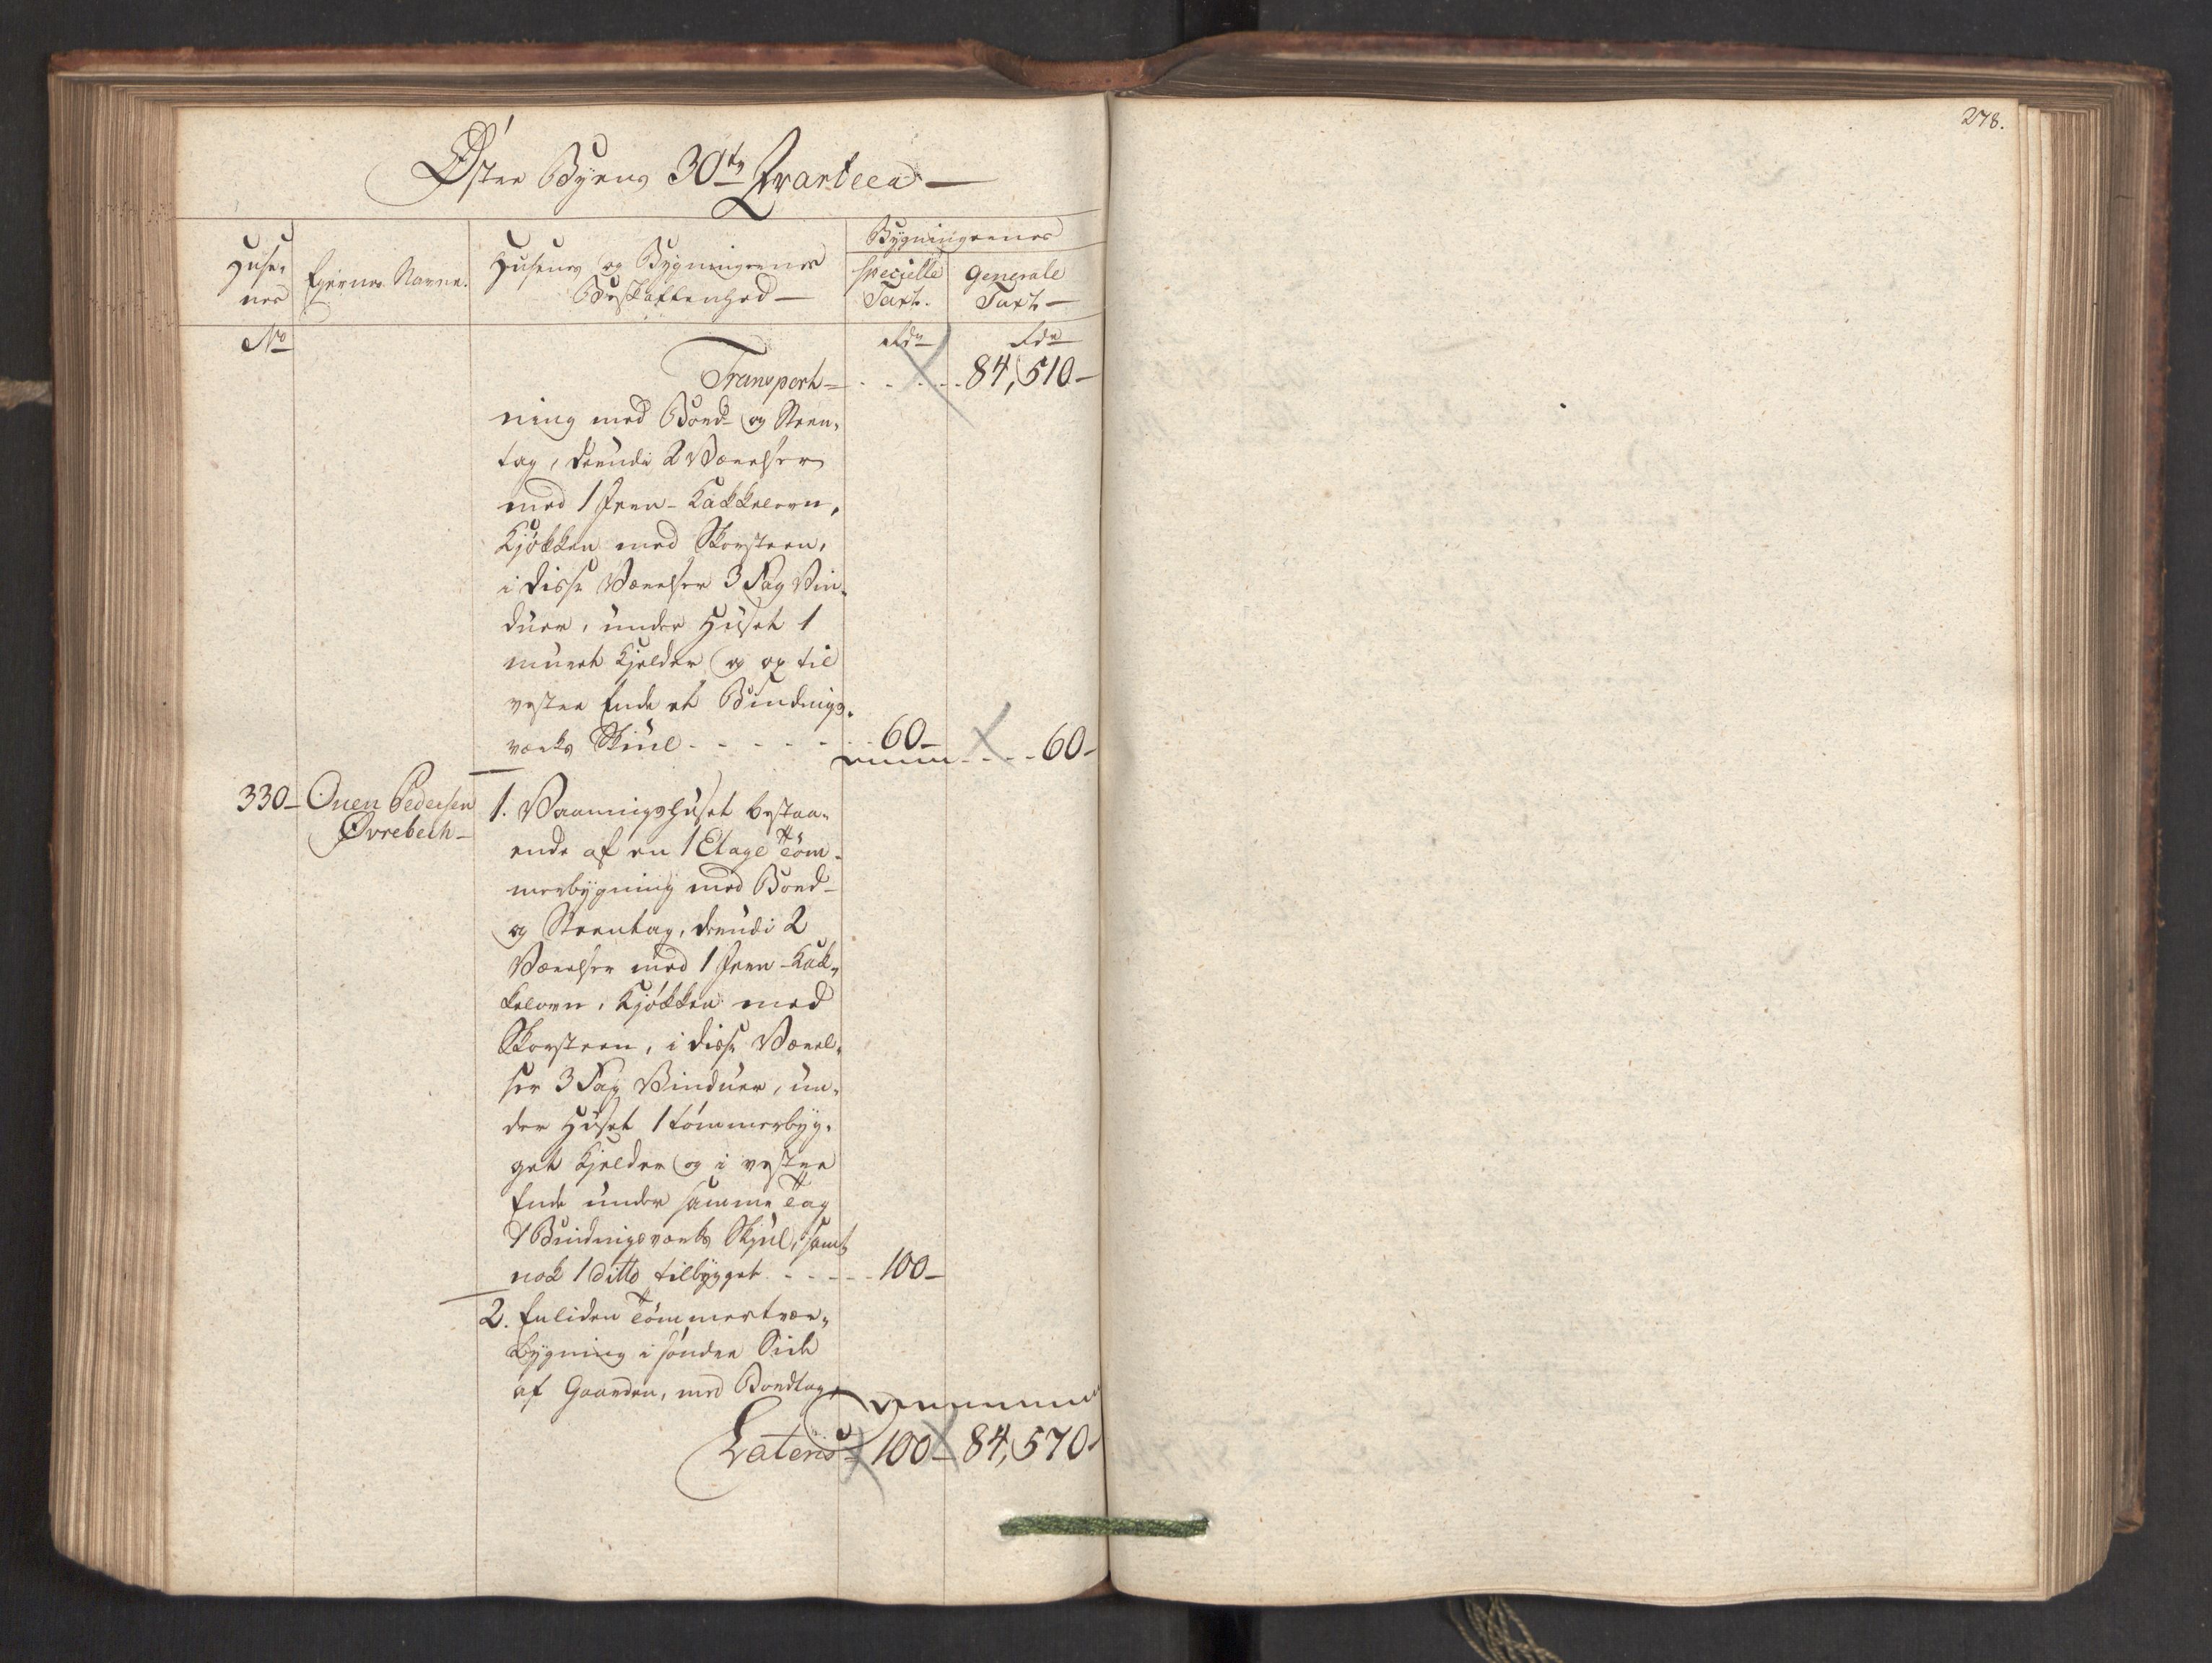 Øster Byens 30te Qvarteer
Huse-
nes
Ejernes Navne.
Husenes og Bygningernes
Beskaffenhed
Bygningernes
specielle
Taxt.
Generale
Taxt
No
Rdr
Rdr
Transport 84,510
ning med Bord- og Steen-
tag, deri­ndi 2 Værelser
med 1 Jern-Kakkelovn,
Kjøkken med Skorsteen,
i disse Værelser 3 Fag Vin-
duer, under Huset 1
muret Kjelder og op til
vester Ende et Bindings-
værks Skiul 60 60
330 Ouen Pedersen
Øvrebech
1. Vaaningshuset bestaa-
ende af en 1 Etage Töm-
merbygning med Bord-
og Steentag, derindi 2
Værelser med 1 Jern-Kak-
kelovn, Kjøkken med
Skorsteen, i disse Værel-
ser 3 Fag Vinduer, un-
der Huset 1 tömmerbyg-
get Kjelder og i vester
Ende under samme Tag
1 Bindingsværks Skjul, samt
nok 1 ditto tilbygget 100
2. Enliden Tömmertvær-
bygning i sönder Side
af Gaarden, med Bordtag,
Lateris 100 84,570
278.